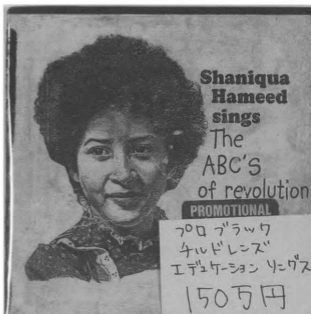 Shaniqua
Hameed
sings
The
ABC'S
of revolution
PROMOTIONAL
プロ ブラック
チルドレンズ
エデュケーション ソングス
150万円